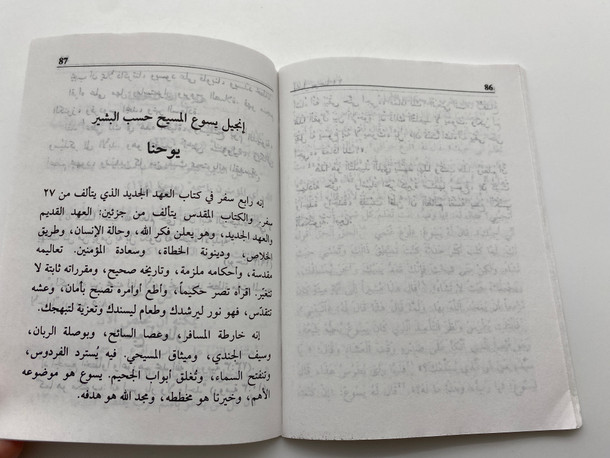 86
87
إنجيل يسوع المسيح حسب البشير
يوحنا
إنه رابع سفر في كتاب العهد الجديد الذي يتألف من ٢٧
سفر. والكتاب المقدس يتألف من جزئين: العهد القديم
والعهد الجديد، وهو يعلن فكر الله، وحالة الإنسان، وطريق
الخلاص، ودينونة الخطاة، وسعادة المؤمنين. تعاليمه
مقدسة، وأحكامه ملزمة، وتاريخه صحيح، ومقرراته ثابتة لا
تتغيّر. اقرأه تصر حكيماً، وأطع أوامره تصبح بأمان، وعشه
تتقدّس، فهو نور ليرشدك وطعام ليسندك وتعزية لتبهجك.
إنه خارطة المسافر، وعصا السائح، وبوصلة الربان،
وسيف الجندي، وميثاق المسيحي. فيه يُسترد الفردوس،
وتنفتح السماء، وتُغلق أبواب الجحيم. يسوع هو موضوعه
الأهم، وخيرنا هو مخططه، ومجد الله هو هدفه.